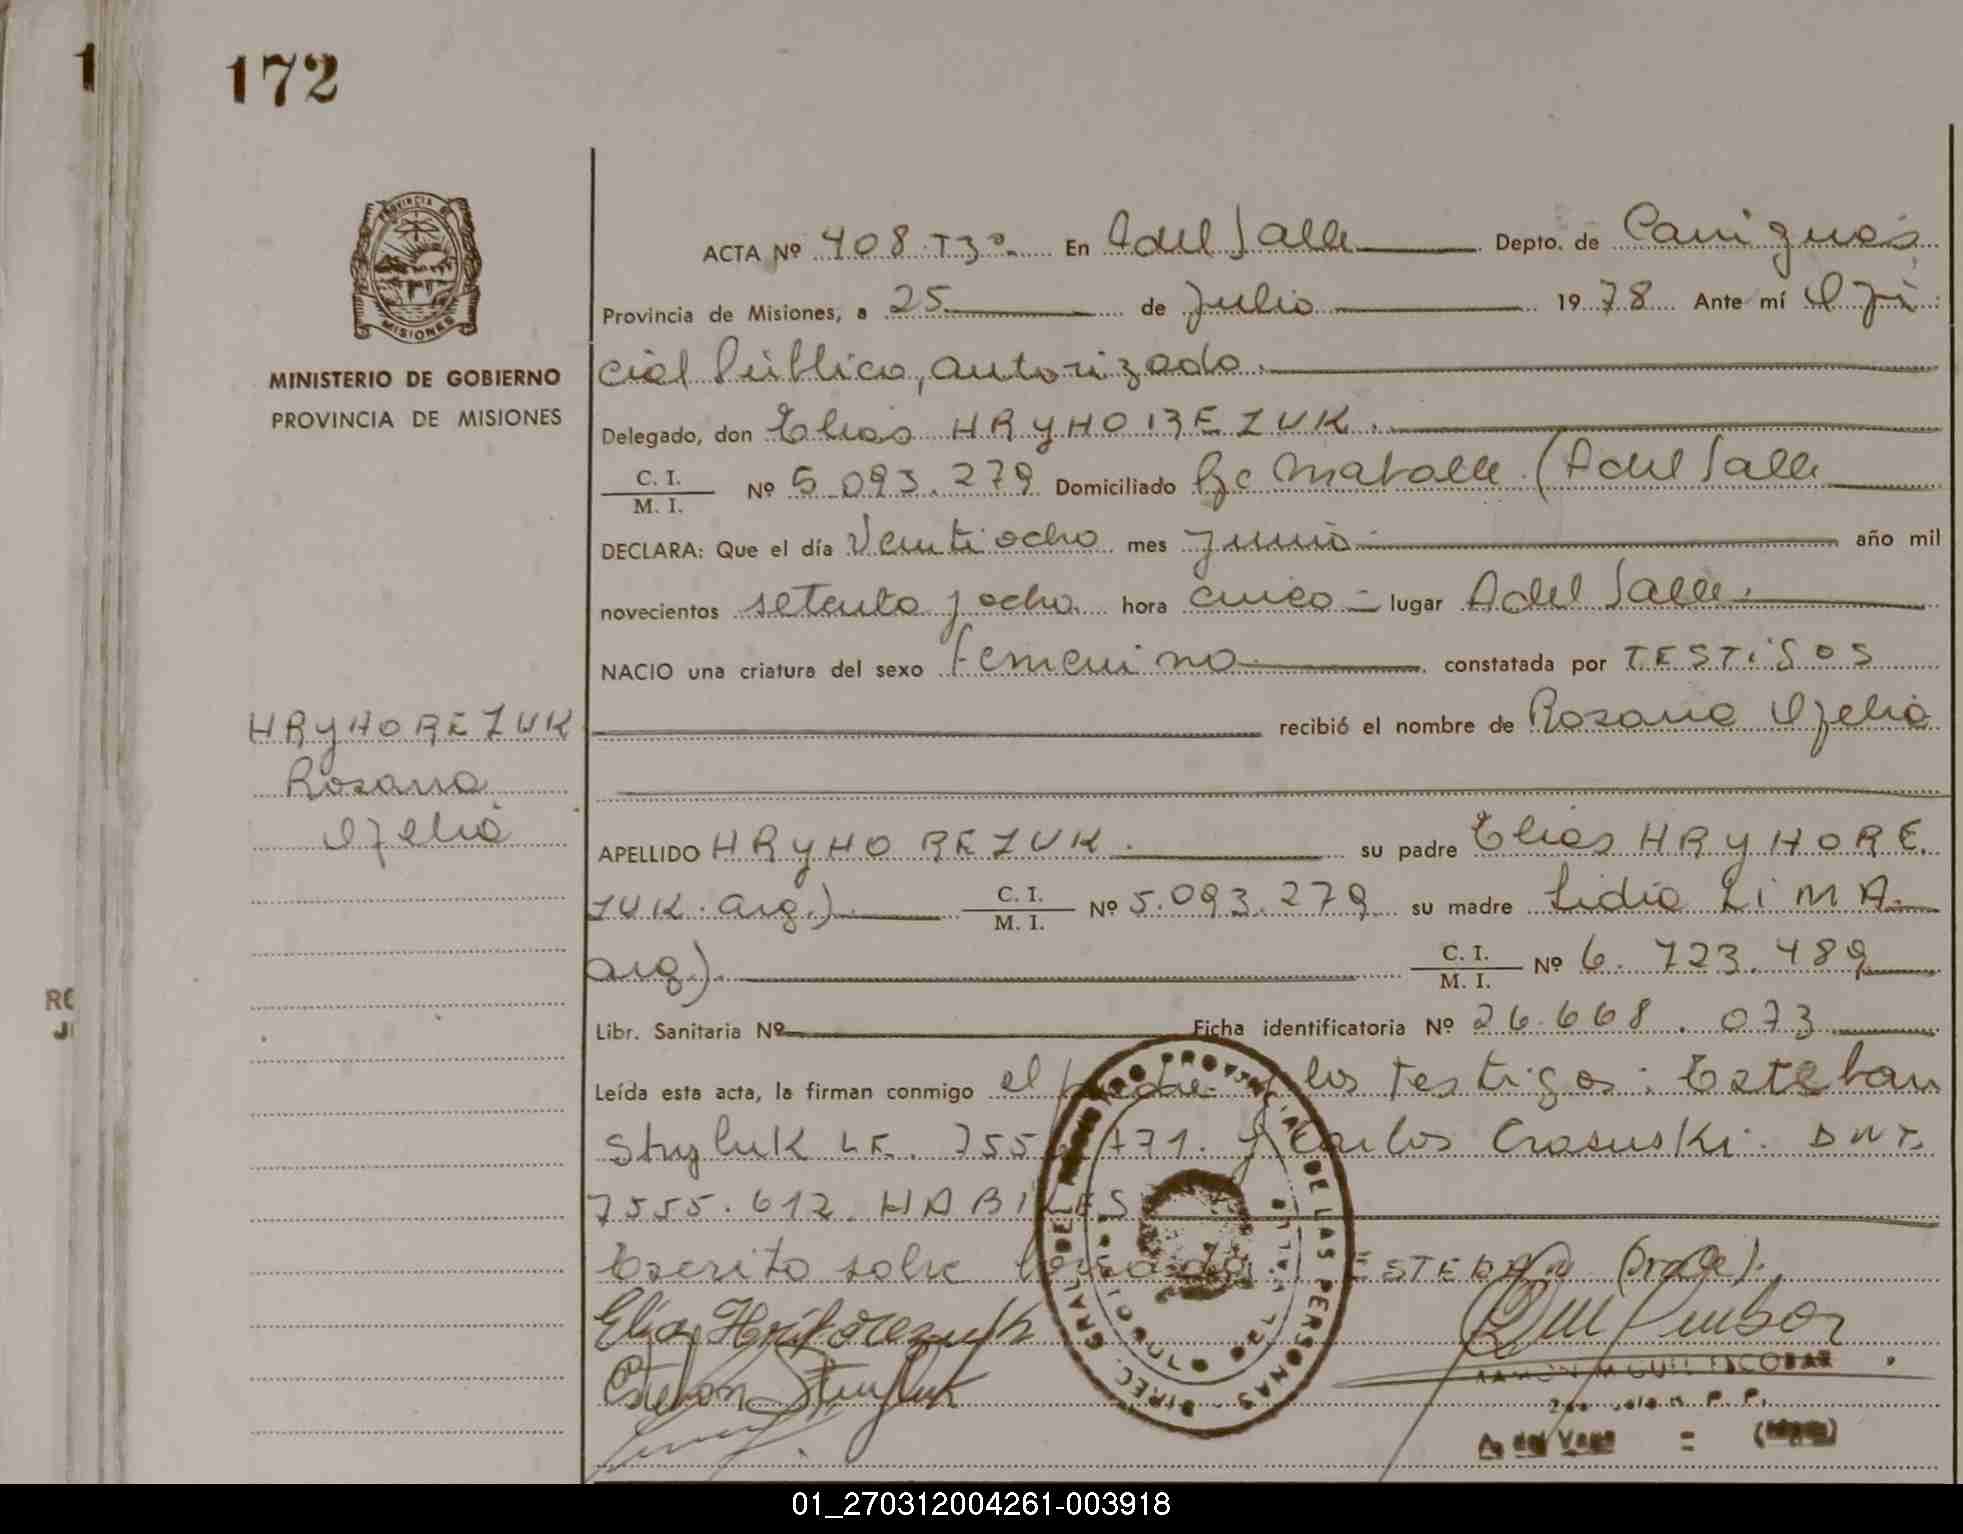 1
172
PROVINCIA DE
MISIONES
MINISTERIO DE GOBIERNO
PROVINCIA DE MISIONES
ACTA Nº 408 T3º En A del Valle Depto. de Cainguás
Provincia de Misiones, a 25 de Julio 1978 Ante mí Ofi
cial Público, autorizado.
Delegado, don Elias HRYHOREZUK.
C. I.
M. I. Nº 5.093.279 Domiciliado (A del Valle
DECLARA: Que el día Ventiocho mes Junio año mil
novecientos setenta y ocho hora cinco lugar A del Valle.
NACIO una criatura del sexo femenino constatada por TESTiGOS
recibió el nombre de Rosana Ofelia
HRYHOREZUK
Rosana
Ofelia
APELLIDO HRYHOREZUK. su padre Elias HRYHORE
ZUK. arg.) C. I.
M. I. Nº 5.093.279 su madre Lidia LiMA.
arg). C. I.
M. I. Nº 6.723.489
RO
J
Libr. Sanitaria Nº Ficha identificatoria Nº 26.668.073
Leída esta acta, la firman conmigo el padre y los Testigos: Esteban
Stryluk LE. y Carlos DNI.
7555.612. HABILES
Escrito sobre borrado ESTEBAN (vale).
Elias Hrihorezuk
Esteban Stryluk
DIREC. GRAL DE REGISTRO PROVINCIAL DE LAS PERSONAS
A. DEL VALLE
RAMON MIGUEL ESCOBAR
A. del Valle = (Mnes)
01_270312004261-003918